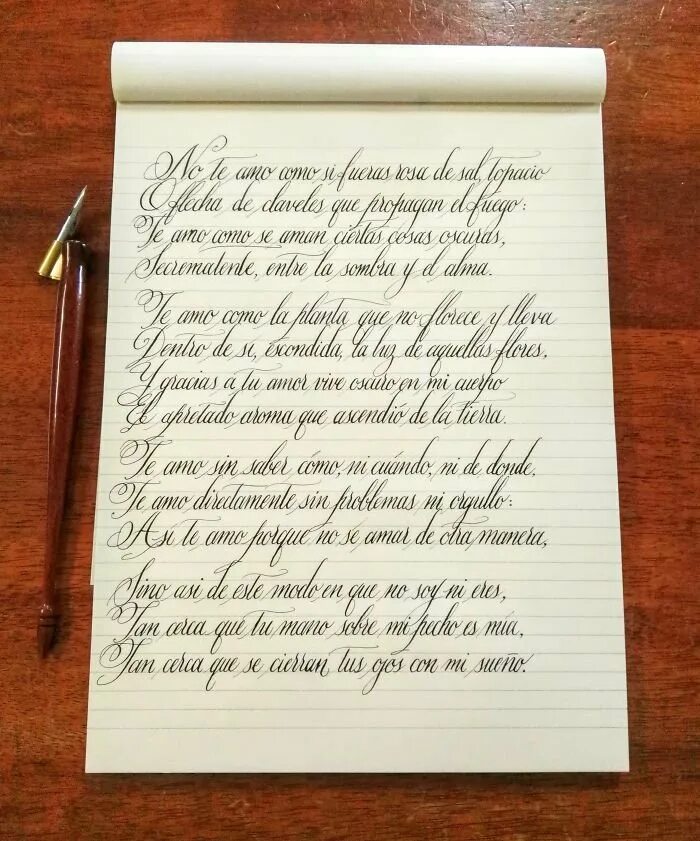 No te amo como si fueras rosa de sal, topacio
O flecha de claveles que propagan el fuego:
Te amo como se aman ciertas cosas oscuras,
Secrematente, entre la sombra y el alma.
Te amo como la planta que no florece y lleva
Dentro de si, escondida, la luz de aquellas flores,
Y gracias a tu amor vive oscuro en mi cuerpo
El apretado aroma que ascendió de la tierra.
Te amo sin saber cómo, ni cuándo, ni de donde.
Te amo directamente sin problemas ni orgullo:
Asi te amo porque no sé amar de otra manera,
Sino asi de este modo en que no soy ni eres,
Tan cerca que tu mano sobre mi pecho es mía,
Tan cerca que se cierran tus ojos con mi sueño.